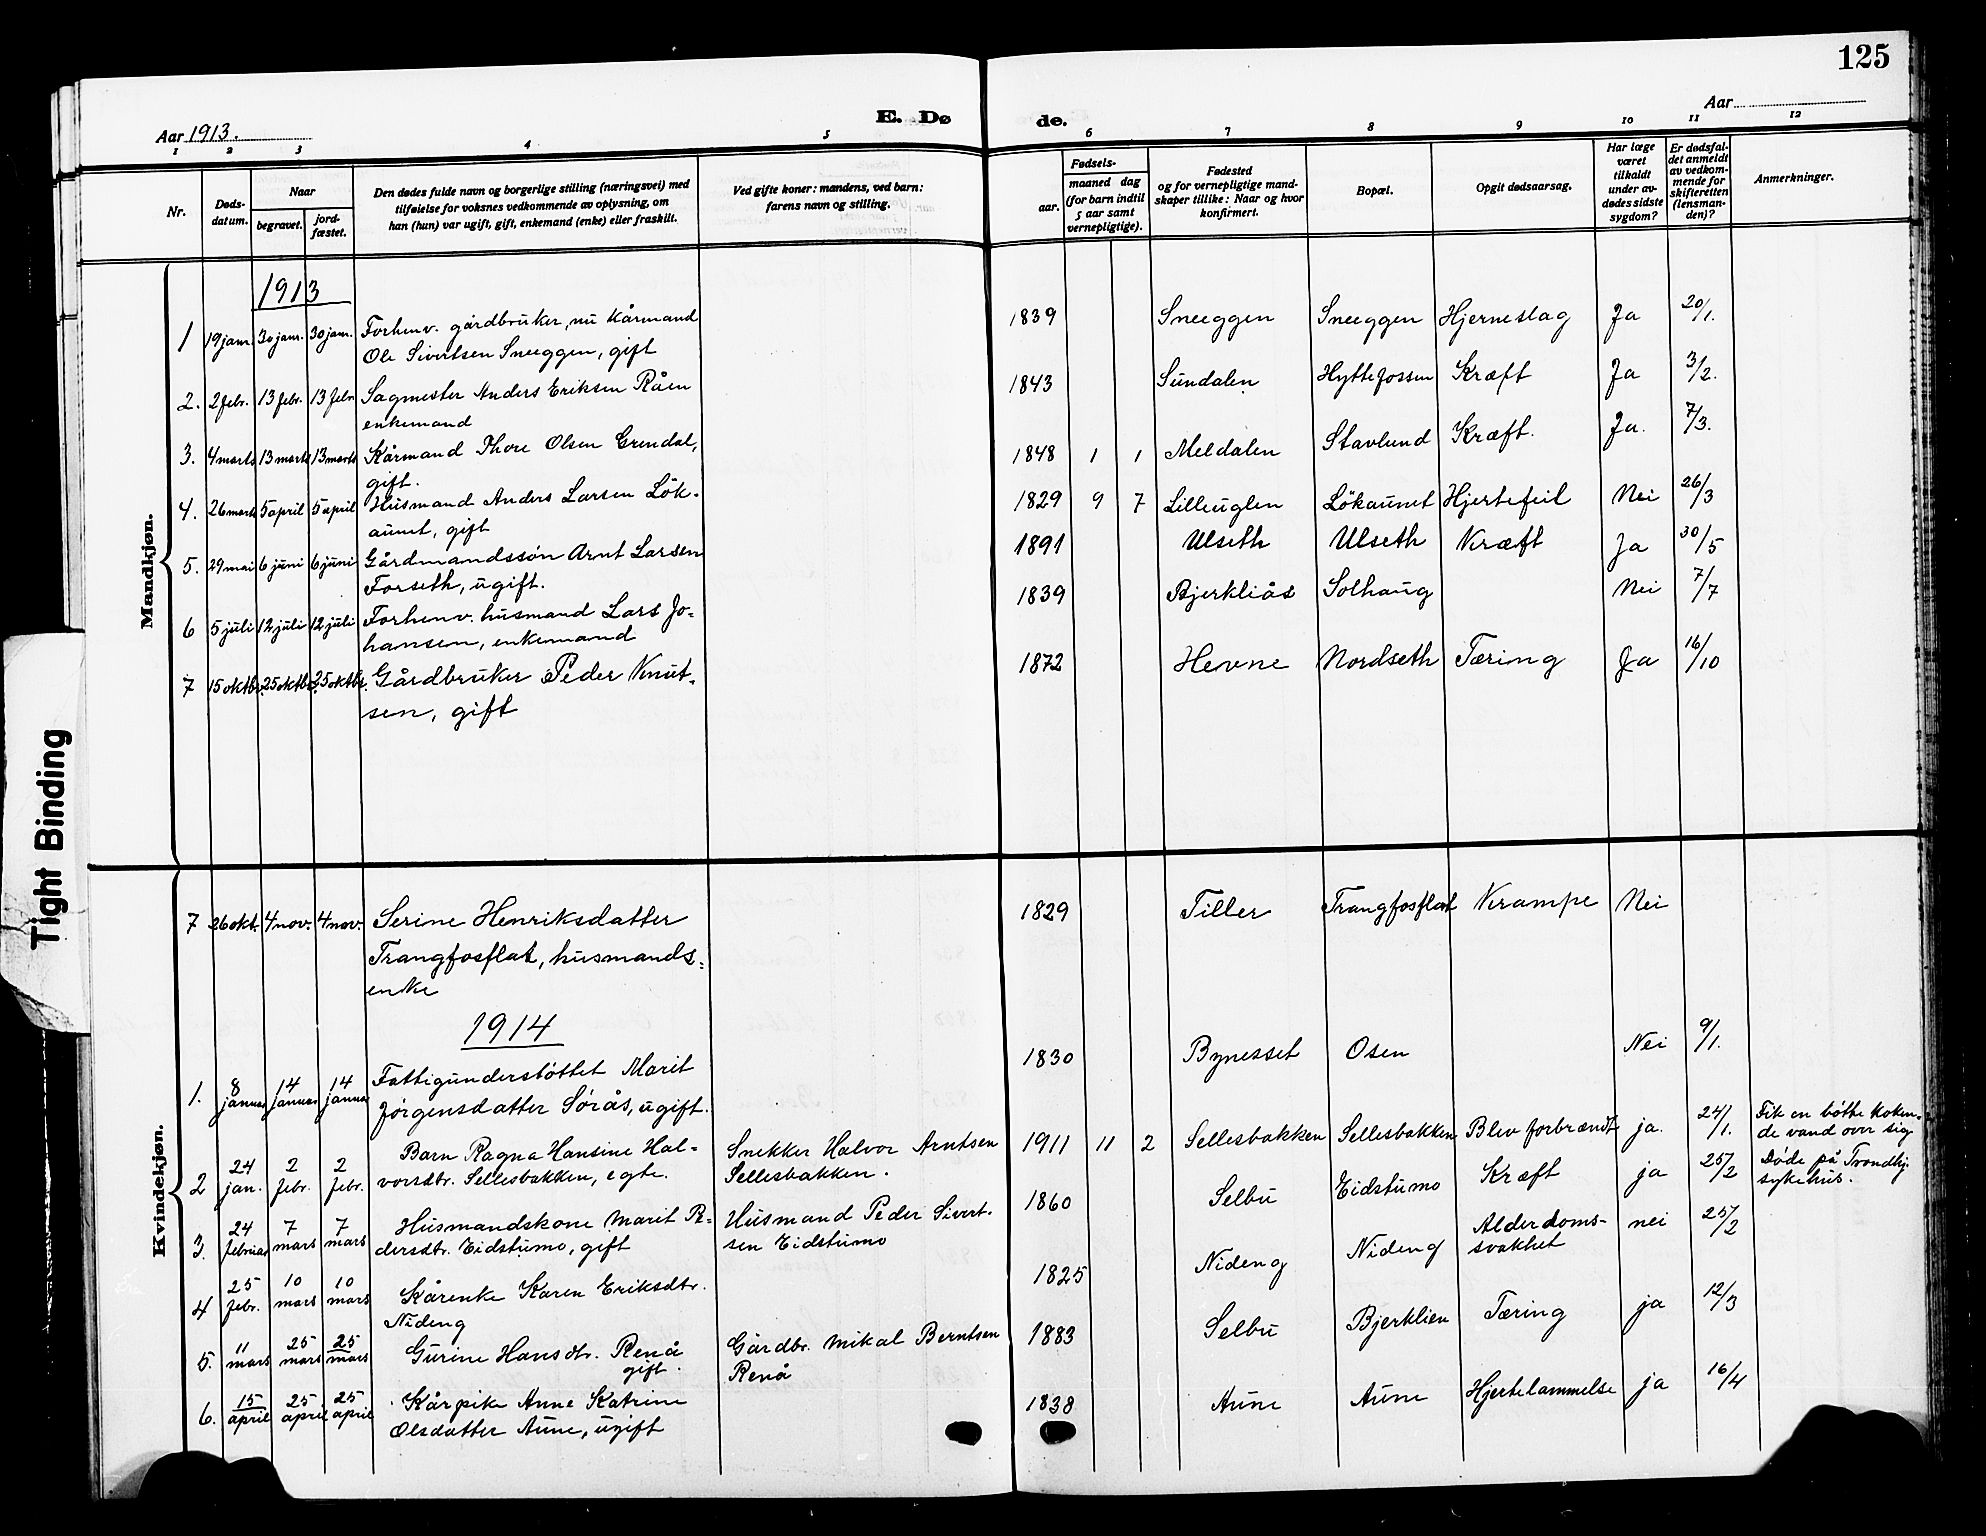 125
Aar 1913.
E. Dø
de.
Aar
1 2 3 4 5 6 7 8 9 10 11 12
Nr.
Døds-
datum.
Naar
begravet.
jord-
fæstet.
Den dødes fulde navn og borgerlige stilling (næringsvei) med
tilføielse for voksnes vedkommende av oplysning, om
han (hun) var ugift, gift, enkemand (enke) eller fraskilt.
Ved gifte koner: mandens, ved barn:
farens navn og stilling.
Fødsels-
aar.
maaned dag
(for barn indtil
5 aar samt
vernepligtige).
Fødested
og for vernepligtige mand-
skaper tillike: Naar og hvor
konfirmert.
Bopæl.
Opgit dødsaarsag.
Har læge
været
tilkaldt
under av-
dødes sidste
sygdom?
Er dødsfal-
det anmeldt
av vedkom-
mende for
skifteretten
(lensman-
den)?
Anmerkninger.
Mandkjøn.
1913
1 19 janr. 30 janr. 30 janr. Forhenv. gårdbruker, nu kårmand
Ole Sivertsen Sneeggen, gift
1839 Sneeggen Sneeggen Hjerneslag Ja 20/1.
2. 2 febr. 13 febr. 13 febr. Sagmester Anders Eriksen Råen
enkemand
1843 Sundalen Hyttefossen Kræft Ja 3/2.
3. 4 marts 13 marts 13 marts Kårmand Thore Olsen Grendal,
gift.
1848 1 1 Meldalen Stavlund Kræft. Ja. 7/3.
4. 26 marts 5 april 5 april Husmand Anders Larsen Lök-
aunet, gift
1829 9 7 Lilleuglen Lökaunet Hjertefeil Nei 26/3
5. 29 mai 6 juni 6 juni Gårdmandssøn Arnt Larsen
Forseth, ugift.
1891 Ulseth Ulseth Kræft Ja 30/5
6 5 juli 12 juli 12 juli Forhenv. husmand Lars Jo-
hansen, enkemand
1839 Bjerkliås Solhaug Nei 7/7
7 15 oktbr. 25 oktbr. 25 oktbr. Gårdbruker Peder Knut-
sen, gift
1872 Hevne Nordseth Tæring Ja 16/10
Kvindekjøn.
7 26 okt. 4 nov. 4 nov. Serine Henriksdatter
Trangfosflat, husmands-
enke
1829 Tiller Trangfosflat Krampe Nei
1914
1. 8 januar 14 januar 14 januar Fattigunderstøttet Marit
Jörgensdatter Sörås, ugift.
1830 Bynesset Osen Nei 9/1.
2 24 jan. 2 febr. 2 febr. Barn Ragna Hansine Hal-
vorsdtr. Sellesbakken, egte.
Snekker Halvor Arntsen
Sellesbakken.
1911 11 2 Sellesbakken Sellesbakken Blev forbrændt ja. 24/1. Fik en bøtte koken-
de vand over sig
3. 24 februar 7 mars 7 mars Husmandskone Marit Pe-
dersdtr. Eidstumo, gift
Husmand Peder Sivert-
sen Eidstumo
1860 Selbu Eidstumo Kræft ja 25/2 Döde på Trondhj.
sykehus.
4 25 febr. 10 mars 10 mars Kårenke Karen Eriksdtr.
Nideng
1825 Nideng Nideng Alderdoms-
svakhet nei 25/2
5. 11 mars 25 mars 25 mars Gurine Hansdtr. Renå
gift.
Gårdbr. Mikal Berntsen
Renå
1883 Selbu Bjerklien Tæring ja 12/3
6. 15 april 25 april 25 april Kårpike Anne Katrine
Olsdatter Aune, ugift
1838 Aune Aune Hjertelammelse ja 16/4
Tight Binding